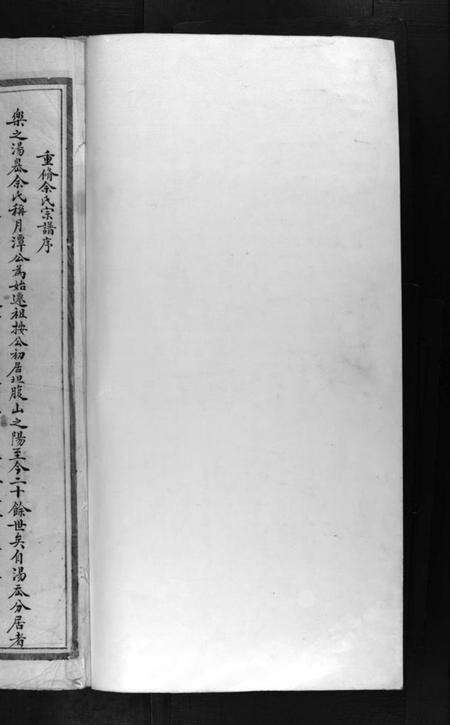 重脩余氏宗譜序
樂之湯嶴余氏稱月潭公為始遷祖按公初居坦腹山之陽至今二十餘世矣自湯嶴分居者